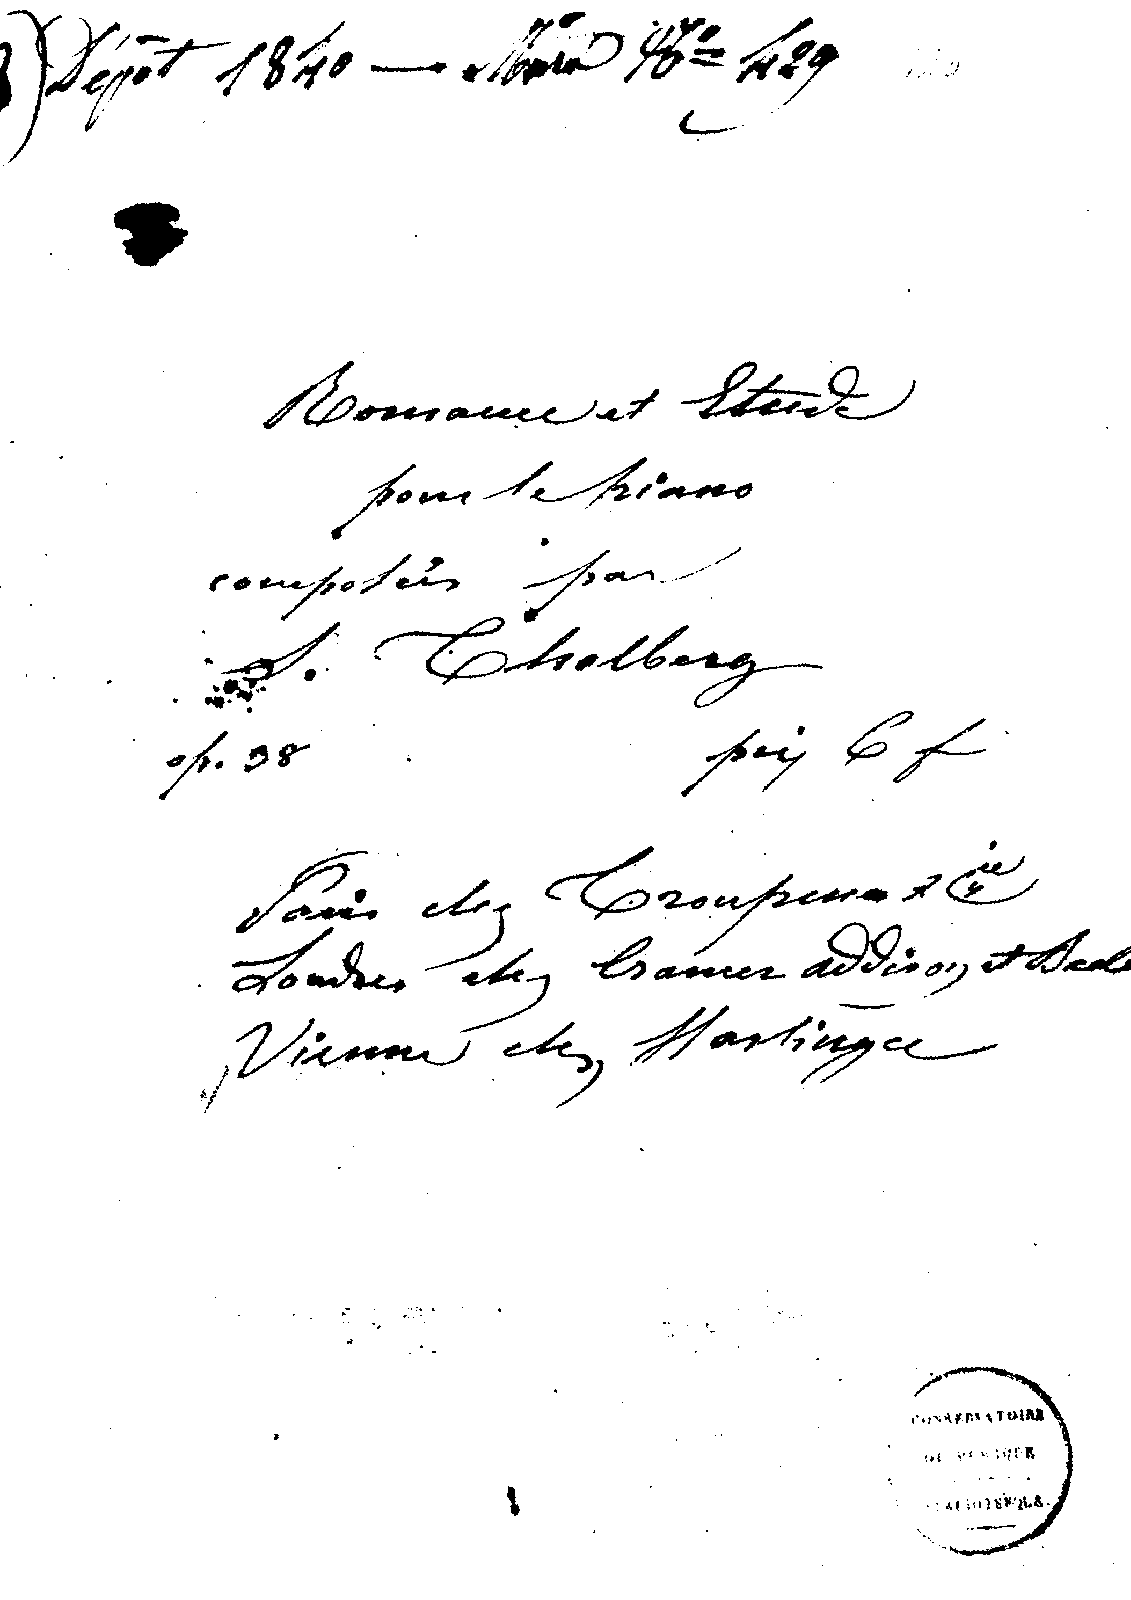 Dépôt 1840 — 429
Romance et Etude
pour le piano
composées par
S. Thalberg
op. 38
prix 6 f
Paris chez Troupenas & Cie
Londres chez Cramer addison et Beale
Vienne chez Haslinger
CONSERVATOIRE
DE MUSIQUE
BIBLIOTHÈQUE